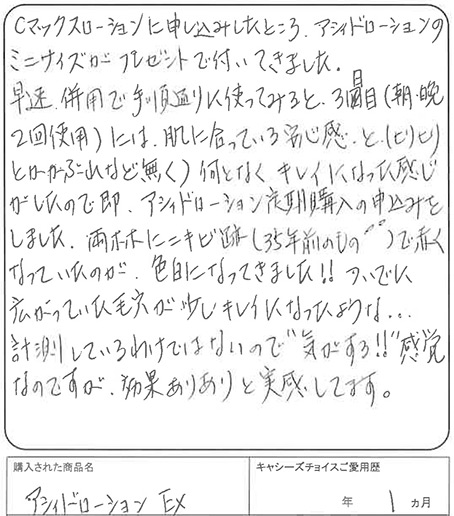 Cマックスローションに申し込みしたところ、アシィドローションの
ミニサイズがプレゼントで付いてきました。
早速、併用で手順通りに使ってみると、3日目(朝・晩
2回使用)には、肌に合っている安心感と、(ピリピリ
とかかぶれなど無く)何となくキレイになった感じ
がしたので即、アシィドローション定期購入の申込みを
しました。両ホホにニキビ跡(35年前のもの〃)で赤く
なっていたのが、色白になってきました!!ついでに
広がっていた毛穴が少しキレイになったような...
計測しているわけではないので"気がする!!"感覚
なのですが、効果ありありと実感してます。
購入された商品名
キャシーズチョイスご愛用歴
アシィドローション EX
年 1 ヵ月